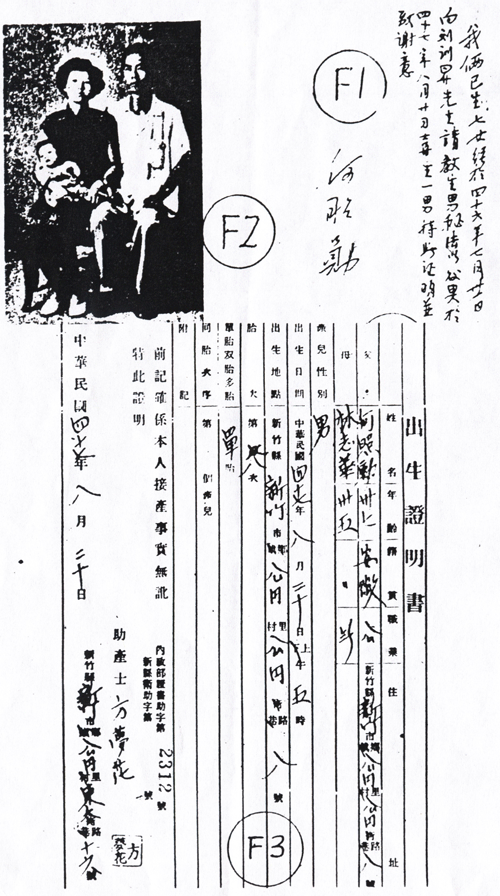 我倆已生七女経於四十六年七月廿日
向刘訓昇先生請教生男秘法以效果於
四十七年八月廿日生一男特此证明並
致謝意
F1
何照勳
F2
出生證明書
姓名 年齡 籍貫 職業 住址
父 何照勳 安徽 公 新竹縣新竹市公园里公园路八
母 林志華 卅五 〃
產兒性別 男
出生日期 中華民國四七年八月二十日上午五時
出生地點 新竹縣新竹市公园里公园路八號
胎次 第八次
單胎双胎多胎 單胎
同胎次序 第 個產兒
附記
前記確係本人接產事實無訛
特此證明
中華民國四十七年八月二十日
內政部證書助字第 號
新縣衛助字第2312號
助產士 方夢花
新竹縣新竹市公园里東大路十六號
方夢花
F3